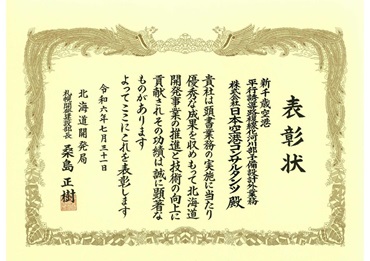 表彰状
新千歳空港
平行誘導路横断河川部予備設計外業務
株式会社日本空港コンサルタンツ 殿
貴社は頭書業務の実施に当たり
優秀な成果を収めもって北海道
開発事業の推進と技術の向上に
貢献されその功績は誠に顕著な
ものがあります
よってここにこれを表彰します
令和六年七月三十一日
北海道開発局
札幌開発建設部長 桑島 正樹